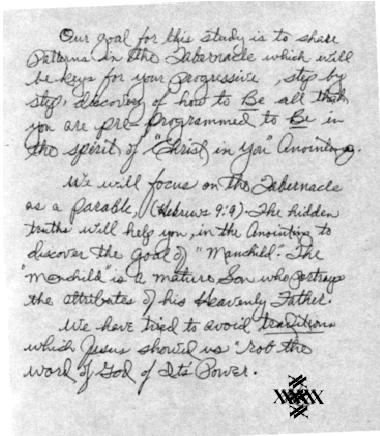 Our goal for this study is to share
Patterns in the Tabernacle which will
be keys for your Progressive, step by
step, discovery of how to Be all that
you are pre-programmed to Be in
the spirit of "Christ in you" Anointing.
We will focus on the Tabernacle
as a parable, (Hebrews 9:9). The hidden
truths will help you, in the Anointing to
discover the goal of "Manchild". The
"Manchild" is a mature Son who portrays
the attributes of his Heavenly Father.
We have tried to avoid traditions
which Jesus showed us "rob the
word of God of Its Power.